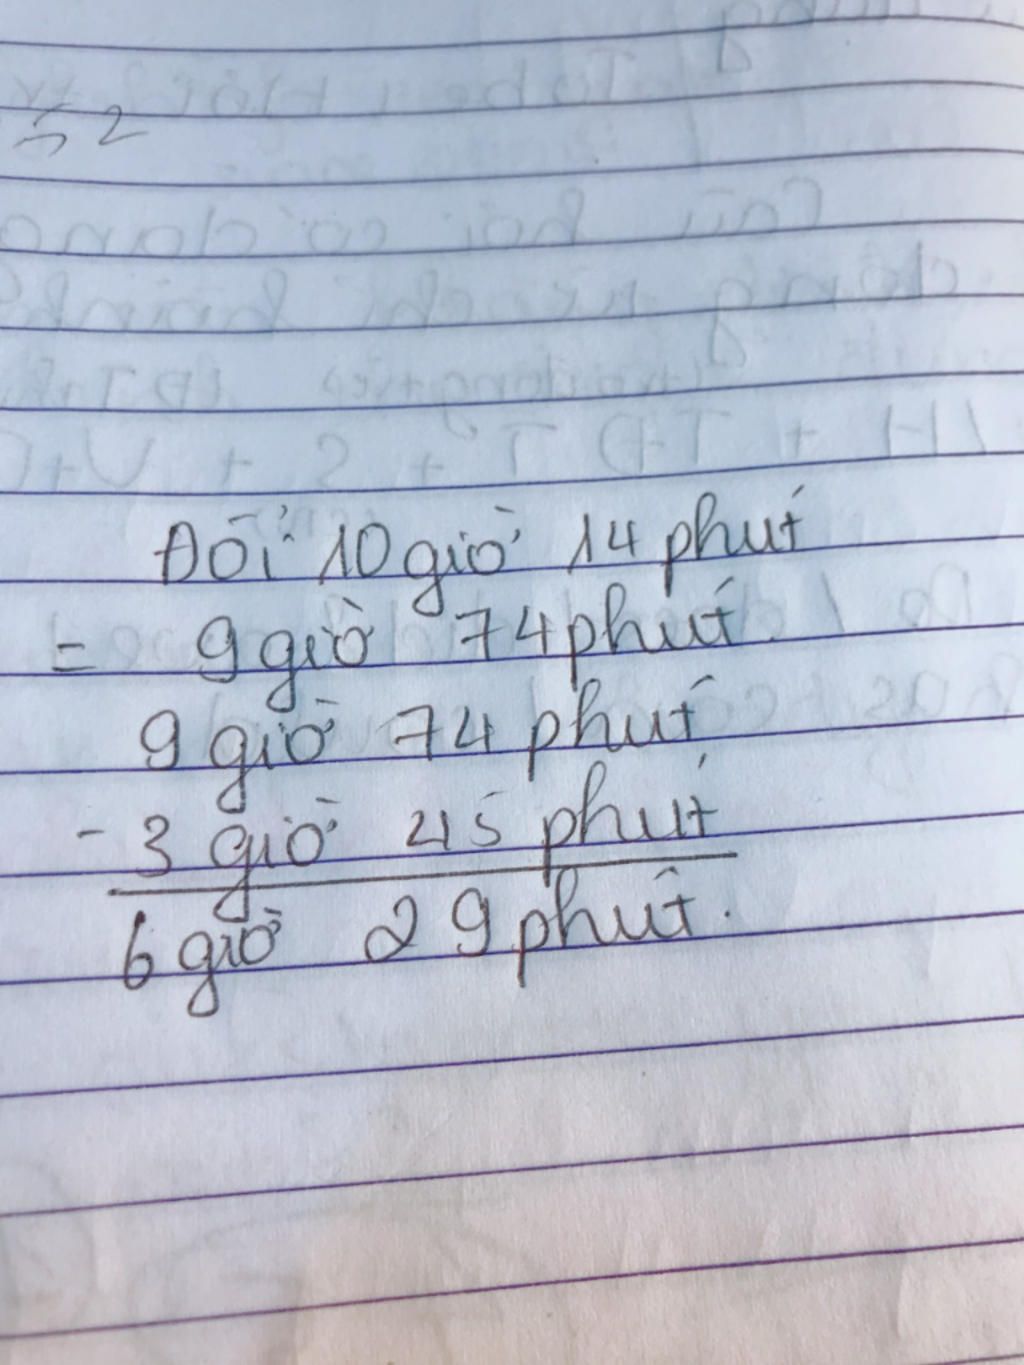 2
Đổi 10 giờ 14 phút
= 9 giờ 74 phút.
9 giờ 74 phút
- 3 giờ 45 phút
6 giờ 29 phút.